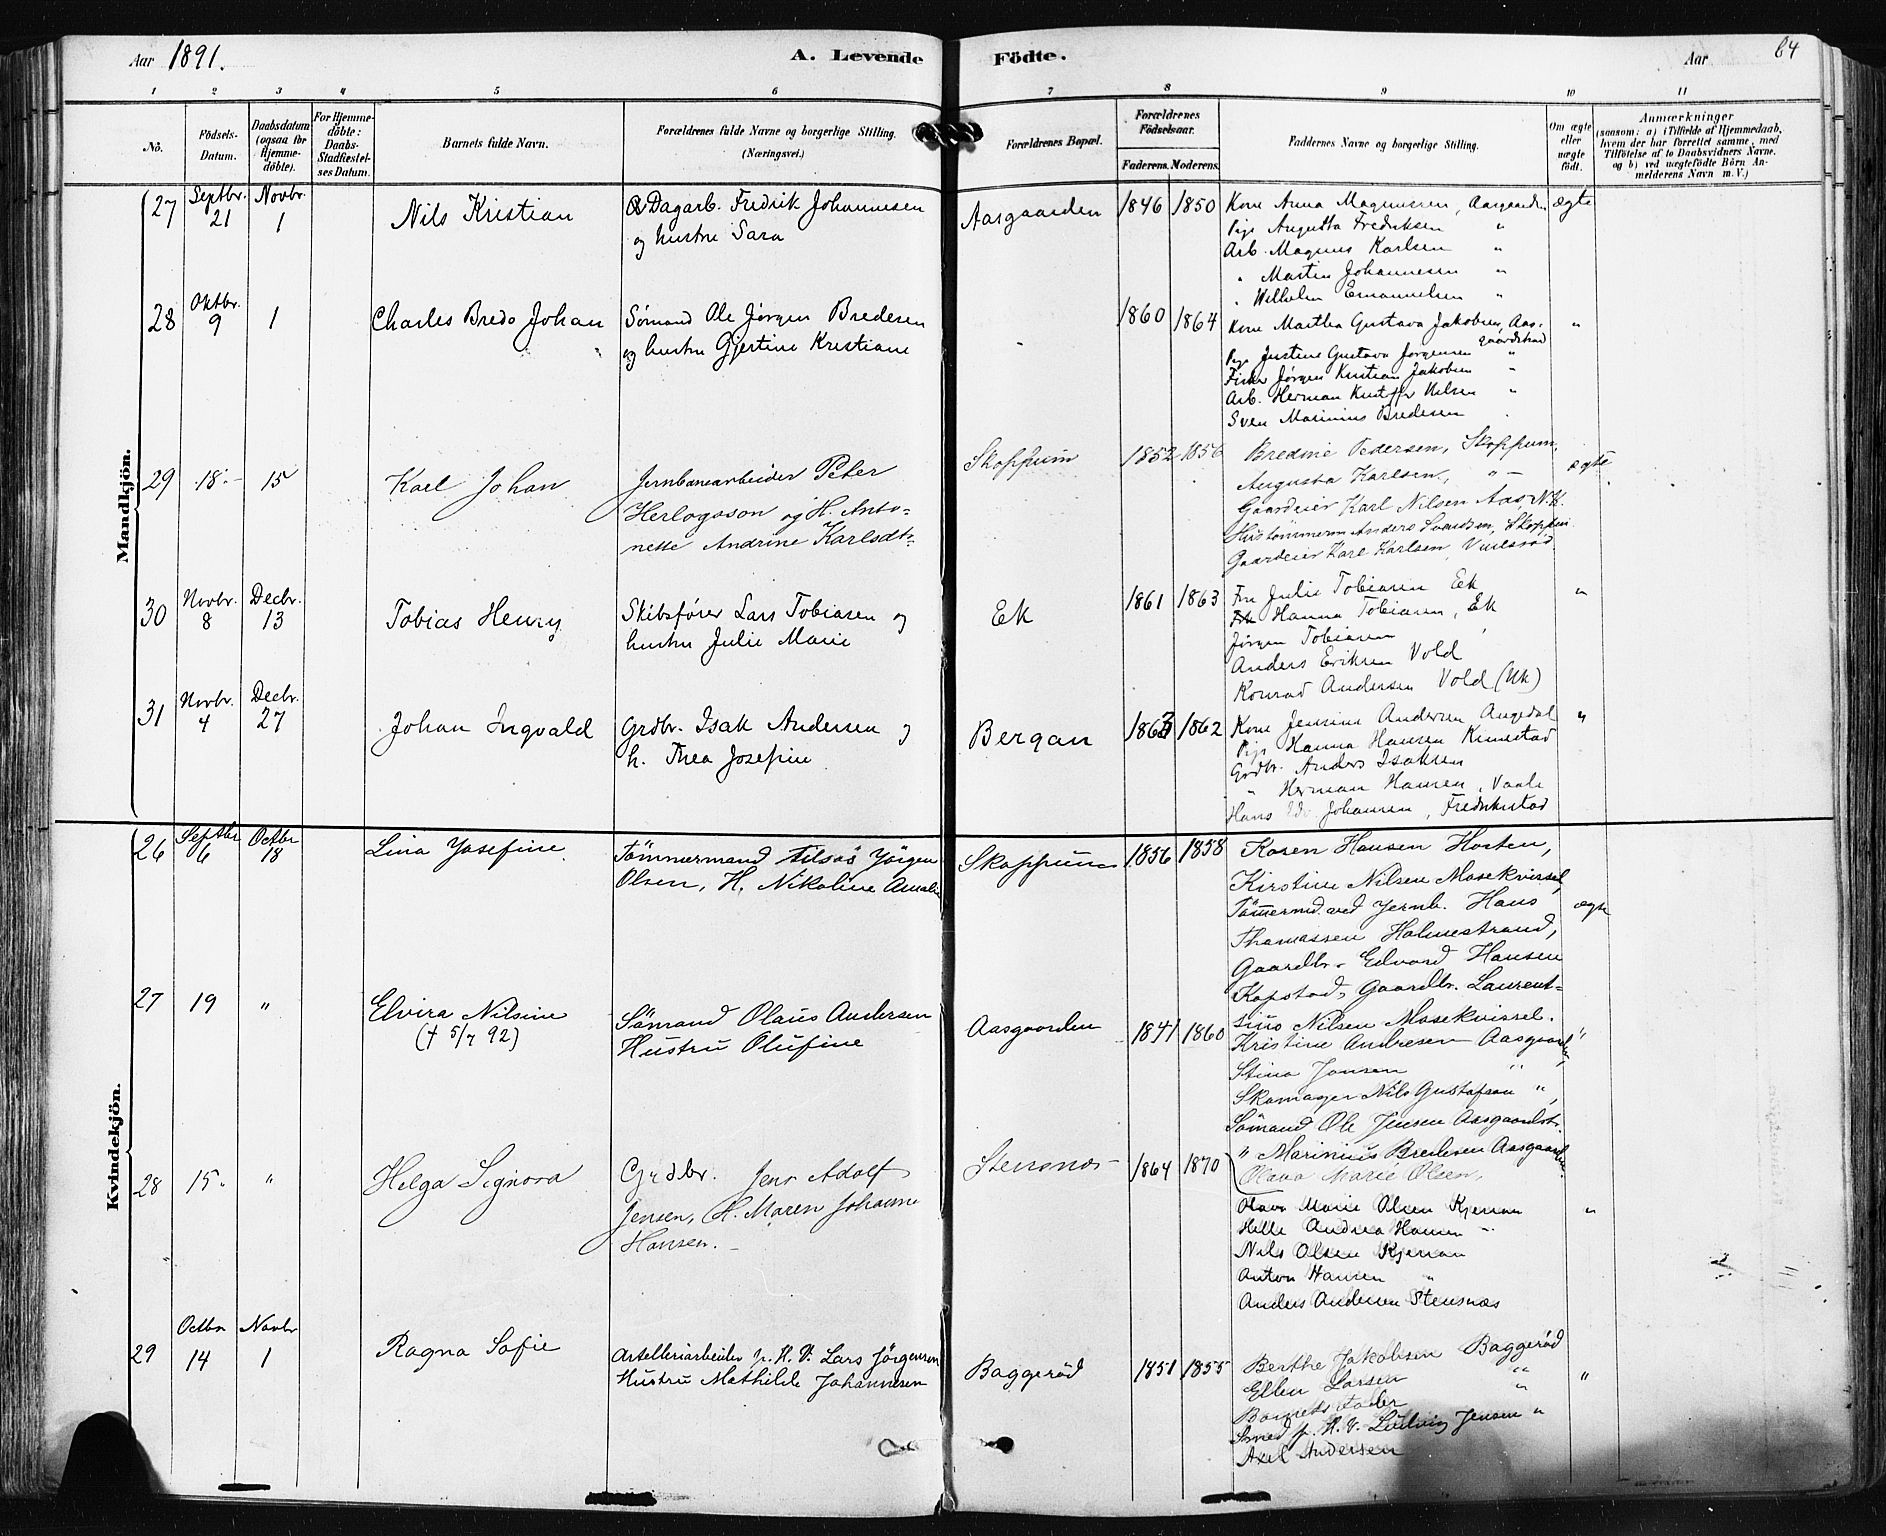 Aar 1891.
A. Levende Födte.
Aar
64
1 2 3 4 5 6 7 8 9 10 11
No.
Födsels-Datum.
Daabsdatum (ogsaa for Hjemme-döbte).
For Hjemme-döbte: Daabs-Stadfæstel-ses Datum.
Barnets fulde Navn.
Forældrenes fulde Navne og borgerlige Stilling.
(Næringsvei.)
Forældrenes Bopæl.
Forældrenes Födselsaar.
Faderens. Moderens.
Faddernes Navne og borgerlige Stilling.
Om ægte eller uægte födt.
Anmærkninger
(saasom: a) i Tilfælde af Hjemmedaab,
hvem der har forrettet samme, med
Tilföielse af to Daabsvidners Navne.
og b) ved uægtefödte Börn An-
melderens Navn m. V.)
Mandkjön.
27 Septbr. 21 Novbr. 1 Nils Kristian
Dagarb. Fredrik Johannesen
og hustru Sara
Aasgaarden 1846 1850
Kone Anna Magnussen, Aasgaarden ægte
Pige Augusta Fredriksen "
Arb. Magnus Karlsen "
" Martin Johannesen "
" Wilhelm Emanuelsen "
28 Oktbr. 9 1 Charles Bredo Johan
Sømand Ole Jørgen Bredesen
og hustru Gjertine Kristiane
1860 1864
Kone Martha Gustava Jakobsen, Aas-
gaardstrand "
Pige Justine Gustava Jørgensen "
Fisker Jørgen Kristian Jakobsen "
Arb. Herman Kristoffer Nilsen "
Sven Marinius Bredesen
29 18 15 Karl Johan
Jernbanearbeider Peter
Herlogsson og H. Anto-
nette Andrine Karlsdtr
Skoppum 1852 1856
Bredine Pedersen, Skoppum,
Augusta Karlsen, " ægte
Gaardeier Karl Nilsen Aas, N.K.
Hustömmerm Anders Svendsen, Skoppum
Gaardeier Karl Karlsen,
30 Novbr. 8 Decbr. 13 Tobias Henry
Skibsfører Lars Tobiasen og
hustru Julie Marie
Ek 1861 1863
Fru Julie Tobiasen Ek "
Hanna Tobiasen, Ek
Jørgen Tobiasen
Anders Eriksen Vold
Konrad Andersen Vold (Nk)
31 Novbr. 4 Decbr. 27 Johan Ingvald
Grdbr. Isak Andersen og
h. Thea Josefine
Bergan 1863 1862
Kone Jensine Andersen Augedal "
Pige Hanna Hansen Kimestad
Grdbr. Anders Isaksen
" Herman Hansen, Vaale
Hans Johansen, Fredrikstad
Kvindekjön.
26 Septbr 6 Octbr 18 Lina Josefine
Tömmermand Jörgen
Olsen, H. Nikoline Amalie
Skoppum 1856 1858
Karen Hansen Horten,
Kirstine Nilsen Mosekvissel,
Tömermd. ved Jernb. Hans ægte
Thomassen Holmestrand,
Gaardbr. Edvard Hansen
Kopstad, Gaardbr. Laurent-
sius Nilsen Mosekvissel.
27 19 " Elvira Nilsine
(† 5/7 92)
Sömand Olaus Andersen
Hustru Olufine
Aasgaarden 1841 1860
Kristine Andresen Aasgaarden, "
Stina Jonsen "
Skomager Nils Gustafson ",
Sömand Ole Jensen Aasgaardstr.
" Marinius Bredesen Aasgaarden
28 15 " Helga Signora
Grdbr. Jens Adolf
Jensen, H. Maren Johanne
Hansen.
Stensnæs 1864 1870
Olava Marie Olsen,
Olava Marie Olsen Kjerran "
Helle Andrea Hansen "
Nils Olsen Kjerran
Anton Hansen "
Anders Andersen Stensnæs
29 Octbr 14 Novbr 1 Ragna Sofie
Artelleriarbeider p. H. V. Lars Jörgensen
Hustru Mathilde Johannesen
Baggeröd 1851 1855
Berthe Jakobsen Baggeröd
Ellen Larsen " "
Barnets Fader "
Smed p. H. V. Ludvig Jensen "
Axel Andersen